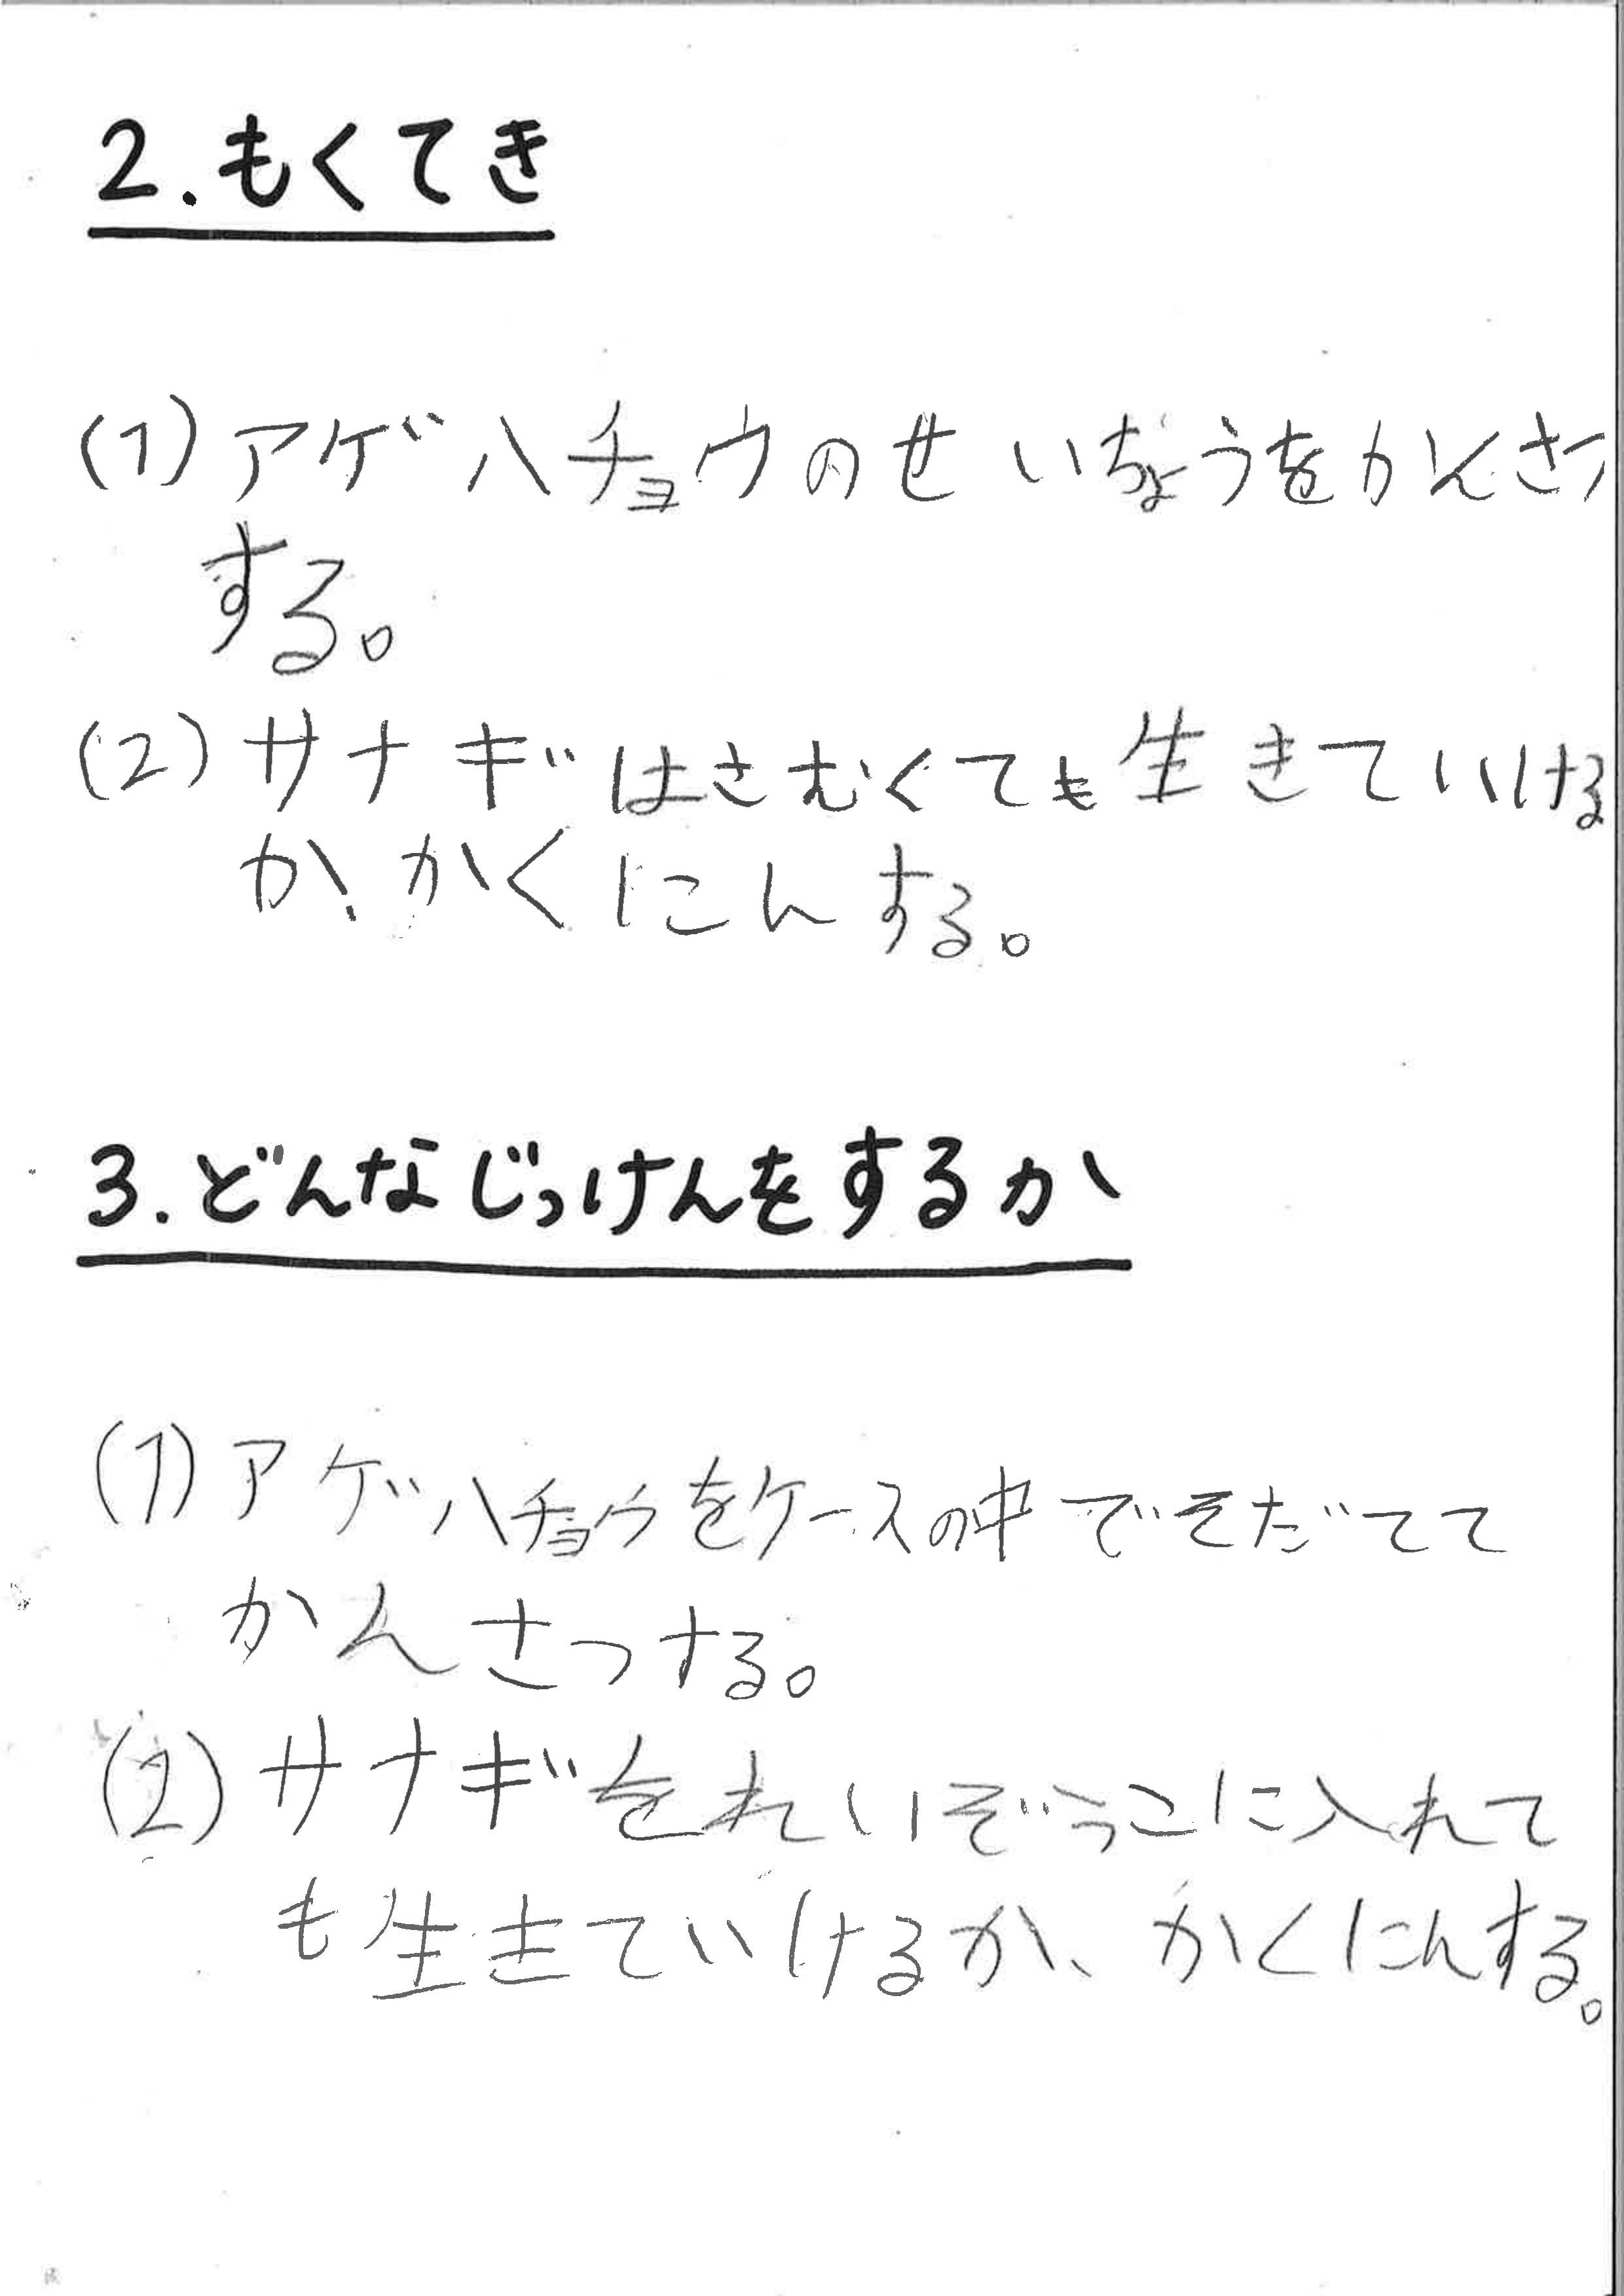 2.もくてき
(1)アゲハチョウのせいちょうをかんさつ
する。
(2)サナギはさむくても生きていける
か、かくにんする。
3.どんなじっけんをするか
(1)アゲハチョウをケースの中でそだてて
かんさつする。
(2)サナギをれいぞうこに入れて
も生きていけるか、かくにんする。